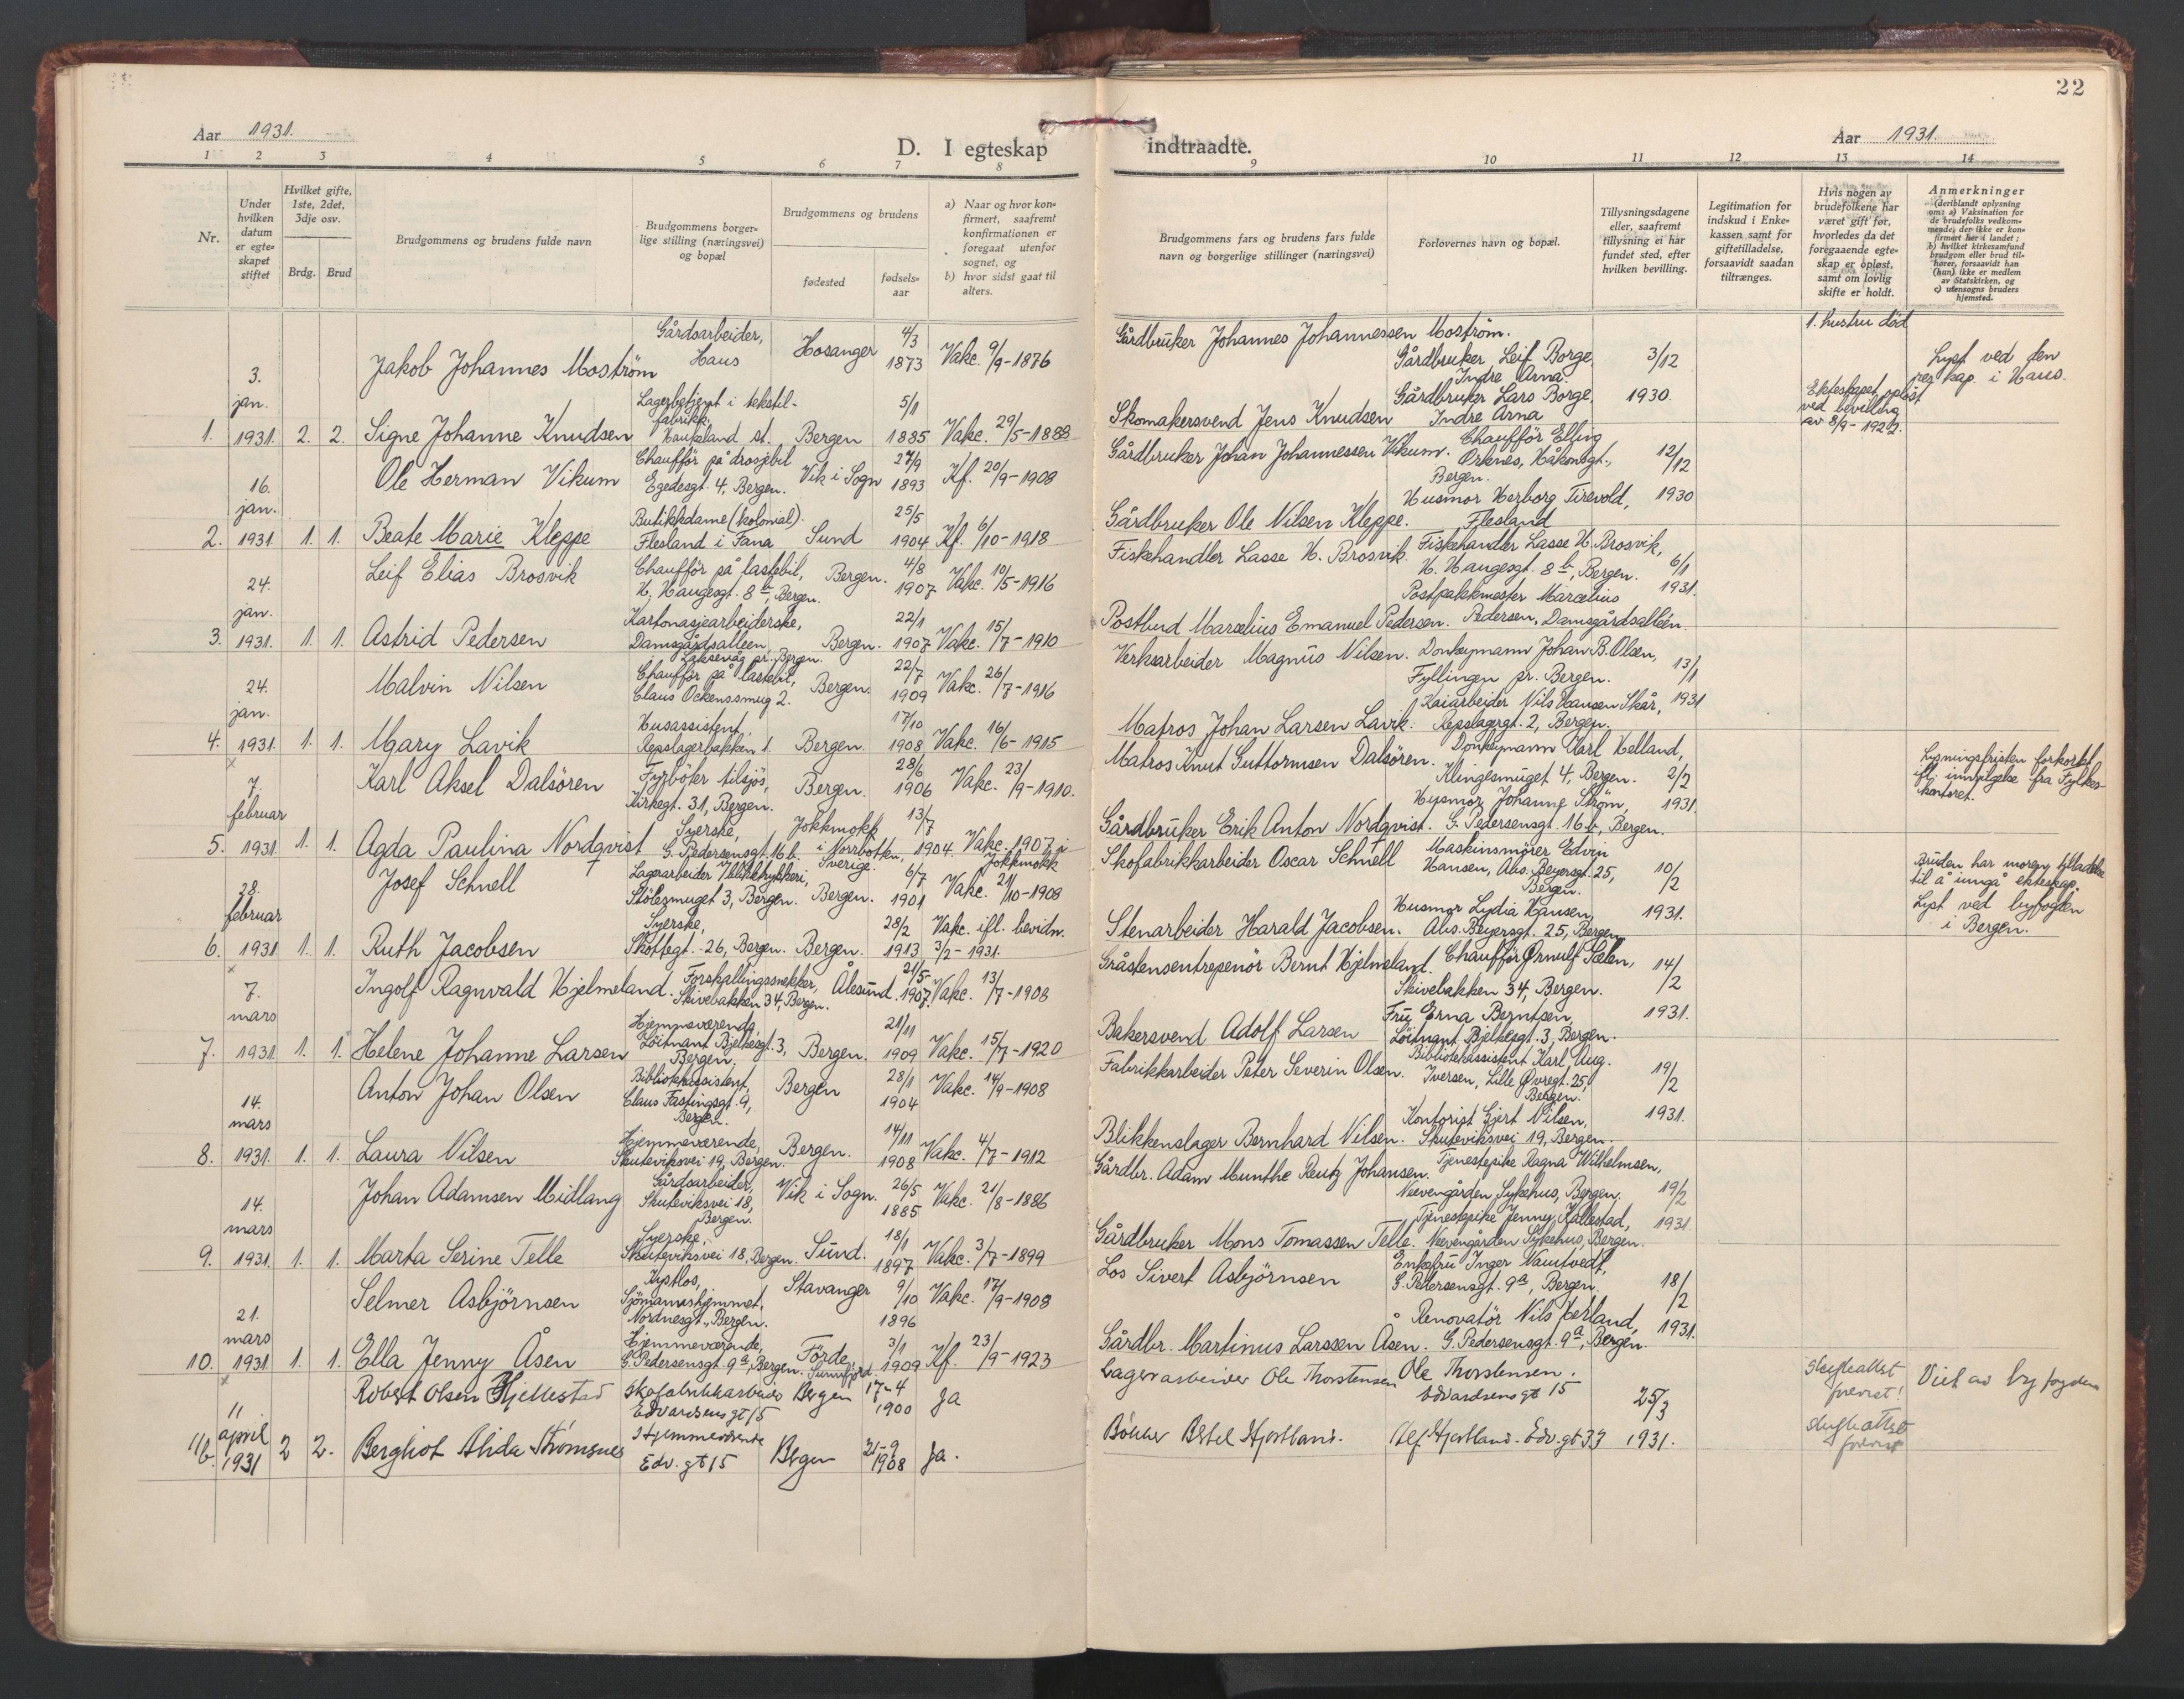 22
Aar 1931.
D. I egteskap indtraadte.
Aar 1931.
1 2 3 4 5 6 7 8 9 10 11 12 13 14
Nr.
Under hvilken datum er egteskapet stiftet
Hvilket gifte, 1ste, 2det, 3dje osv.
Brdg. Brud
Brudgommens og brudens fulde navn
Brudgommens borgerlige stilling (næringsvei) og bopæl
Brudgommens og brudens
fødested
fødselsaar
a) Naar og hvor konfirmert, saafremt konfirmationen er foregaat utenfor sognet, og
b) hvor sidst gaat til alters.
Brudgommens fars og brudens fars fulde navn og borgerlige stillinger (næringsvei)
Forlovernes navn og bopæl.
Tillysningsdagene eller, saafremt tillysning ei har fundet sted, efter hvilken bevilling.
Legitimation for indskud i Enkekassen samt for giftetilladelse, forsaavidt saadan tiltrænges.
Hvis nogen av brudefolkene har været gift før, hvorledes da det foregaaende egteskap er opløst, samt om lovlig skifte er holdt.
Anmerkninger (deriblandt oplysning om: a) Vaksination for de brudefolks vedkommende, der ikke er konfirmert her i landet; b) hvilket kirkesamfund brudgom eller brud tilhører, forsaavidt han (hun) ikke er medlem av Statskirken, og c) utensogns bruders hjemsted.
1. 3. jan. 1931. 2. 2.
Jakob Johannes Moström
Gårdsarbeider, Haus
Hosanger 4/3 1873 Vakc. 9/9-1876
Gårdbruker Johannes Johannessen Moström.
Gårdbruker Leif Borge, Indre Arna.
3/12 1930.
1. hustru död
Lyst ved den
i Haus.
Signe Johanne Knudsen
Lagerbetjent i tekstilfabrikk, Haukeland st.
Bergen 5/1 1885 Vakc. 29/5-1888
Skomakersvend Jens Knudsen
Gårdbruker Lars Borge, Indre Arna
Ekteskapet oplöst ved bevilling av 8/9-1922.
2. 16. jan. 1931. 1. 1.
Ole Herman Vikum
Chaufför på drosjebil Egedesgt. 4, Bergen.
Vik i Sogn 27/9 1893 Kf. 20/9-1908
Gårdbruker Johan Johannessen Vikum.
Chaufför Elling Orknes, Håkonsgt., Bergen.
12/12 1930
Beate Marie Kleppe
Butikkdame (kolonial). Flesland i Fana
Sund 25/5 1904 Kf. 6/10-1918
Gårdbruker Ole Nilsen Kleppe.
Husmor Herborg Tirevold, Flesland
3. 24. jan. 1931. 1. 1.
Leif Elias Brosvik
Chaufför på lastebil, H. Haugesgt. 8b, Bergen.
Bergen. 4/8 1907 Vakc. 10/5-1916
Fiskehandler Lasse H. Brosvik.
Fiskehandler Lasse H. Brosvik, H. Haugesgt. 8b, Bergen.
6/1 1931.
Astrid Pedersen
Kartonasjearbeiderske, Damsgårdsalleen, Laksevåg pr. Bergen.
Bergen. 22/1 1907 Vakc. 15/7-1910
Postbud Marselius Emanuel Pedersen.
Postpakkmester Marcelius Pedersen, Damsgårdsalléen.
4. 24. jan. 1931. 1. 1.
Malvin Nilsen
Chaufför på lastebil, Claus Ockenssmug 2.
Bergen. 22/7 1909 Vakc. 26/7-1916
Verksarbeider Magnus Nilsen.
Donkeymann Johan B. Olsen, Fyllingen pr. Bergen.
13/1 1931
Mary Lavik
Husassistent, Repslagerbakken 1.
Bergen. 17/10 1908 Vakc. 16/6-1915
Matros Johan Larsen Lavik.
Kaiarbeider Nils Hansen Skår, Repslagergt. 2, Bergen.
5. x 7. februar 1931 1. 1.
Karl Aksel Dalsören
Fyrböter tilsjös, Kirkegt. 31, Bergen.
Bergen. 28/6 1906 Vakc. 23/9-1910.
Matros Knut Guttormsen Dalsören.
Donkeymann Karl Helland, Klingesmuget 4, Bergen.
2/2 1931.
Lysningsfristen forkortet ifl. innvilgelse fra Fylkeskontoret.
Agda Paulina Nordqvist
Syerske, G. Pedersensgt. 16b.
Jokkmokk i Norrbotten, Sverige. 13/7 1904. Vakc. 1907 i Jokkmokk
Gårdbruker Erik Anton Nordqvist.
Husmor Johanne Ström, G. Pedersensgt. 16b, Bergen.
6. 28. februar 1931 1. 1.
Josef Schnell
Lagerarbeider i blikktrykkeri, Stölesmuget 3, Bergen.
Bergen. 6/7 1901 Vakc. 21/10-1908
Skofabrikkarbeider Oscar Schnell
Maskinsmörer Edvin Hansen, Abs. Beyersgt. 25, Bergen.
10/2 1931.
Bruden har morens tilladelse til å inngå ekteskap. Lyst ved byfogden i Bergen.
Ruth Jacobsen
Syerske, Skottegt. 26, Bergen.
Bergen. 28/2 1913 Vakc. ifl. bevidn. 3/2-1931.
Stenarbeider Harald Jacobsen.
Husmor Lydia Hansen, Abs. Beyersgt. 25, Bergen
7. x 7. mars 1931 1. 1.
Ingolf Ragnvald Hjelmeland.
Forskallingssnekker, Skivebakken 34, Bergen.
Ålesund. 21/5 1907. Vakc. 13/7-1908
Gråstensentrepenör Bernt Hjelmeland.
Chaufför Ørnulf Sælen, Skivebakken 34, Bergen.
14/2 1931.
Helene Johanne Larsen
Hjemmeværende, Löitnant Bjelkesgt. 3, Bergen.
Bergen. 21/11 1909 Vakc. 15/7-1920
Bakersvend Adolf Larsen
Frü Erna Berntsen, Löitnant Bjelkesgt. 3, Bergen.
8. 14. mars 1931. 1. 1.
Anton Johan Olsen
Bibliotekassistent, Claus Fastingsgt. 9, Bergen.
Bergen 28/1 1904 Vakc. 14/9-1908
Fabrikkarbeider Peter Severin Olsen.
Bibliotekassistent Karl Aug. Iversen, Lille Øvregt. 25, Bergen.
19/2 1931.
Laura Nilsen
Hjemmeværende, Skuteviksvei 19, Bergen.
Bergen. 14/11 1908 Vakc. 4/7-1912
Blikkenslager Bernhard Nilsen.
Kontorist Gjert Nilsen, Skuteviksvei 19, Bergen.
9. 14. mars 1931. 1. 1.
Johan Adamsen Midlang
Gårdsarbeider, Skuteviksvei 18, Bergen.
Vik i Sogn. 26/5 1885 Vakc. 21/8-1886
Gårdbr. Adam Munthe Reutz Johansen.
Tjenestepike Ragna Wilhelmsen, Neevengården Sykehus, Bergen.
19/2 1931
Marta Serine Telle
Syerske, Skuteviksvei 18, Bergen.
Sund. 18/1 1897 Vakc. 3/7-1899
Gårdbruker Mons Tomassen Telle.
Tjenestepike Jenny Kallestad, Neevengården Sykehus, Bergen.
10. 21. mars 1931 1. 1.
Selmer Asbjörnsen
Kystlos, Sjömannshjemmet, Nordnesgt., Bergen.
Stavanger 9/10 1896 Vakc. 17/9-1908
Los Sivert Asbjörnsen
Enkefru Inger Namtvedt, G. Pedersensgt. 9a, Bergen.
18/2 1931.
Ella Jenny Åsen
Hjemmeværende, G. Pedersensgt. 9a, Bergen.
Förde, Sunnfjord. 3/1 1909 Kf. 23/9-1923
Gårdbr. Martinus Larssen Åsen.
Renovatör Nils Herland, G. Pedersensgt. 9a, Bergen.
11 b. x 11 april 1931 2 2.
Robert Olsen Hjellestad
Skofabrikkarbeider Edvardsens gt 15
Bergen 17-4 1900 Ja
Lagerarbeider Ole Thorstensen
Ole Thorstensen. Edvardsens gt 15
25/3 1931.
Skifteattest
Viet av byfogden
Bergliot Alida Strömsnes
Hjemmeværende Edv. gt 15
Bergen 21-9 1908 Ja.
Bökker Bertel Hjortland.
Alf Hjortland. Edv. gt 33
Skifteattest